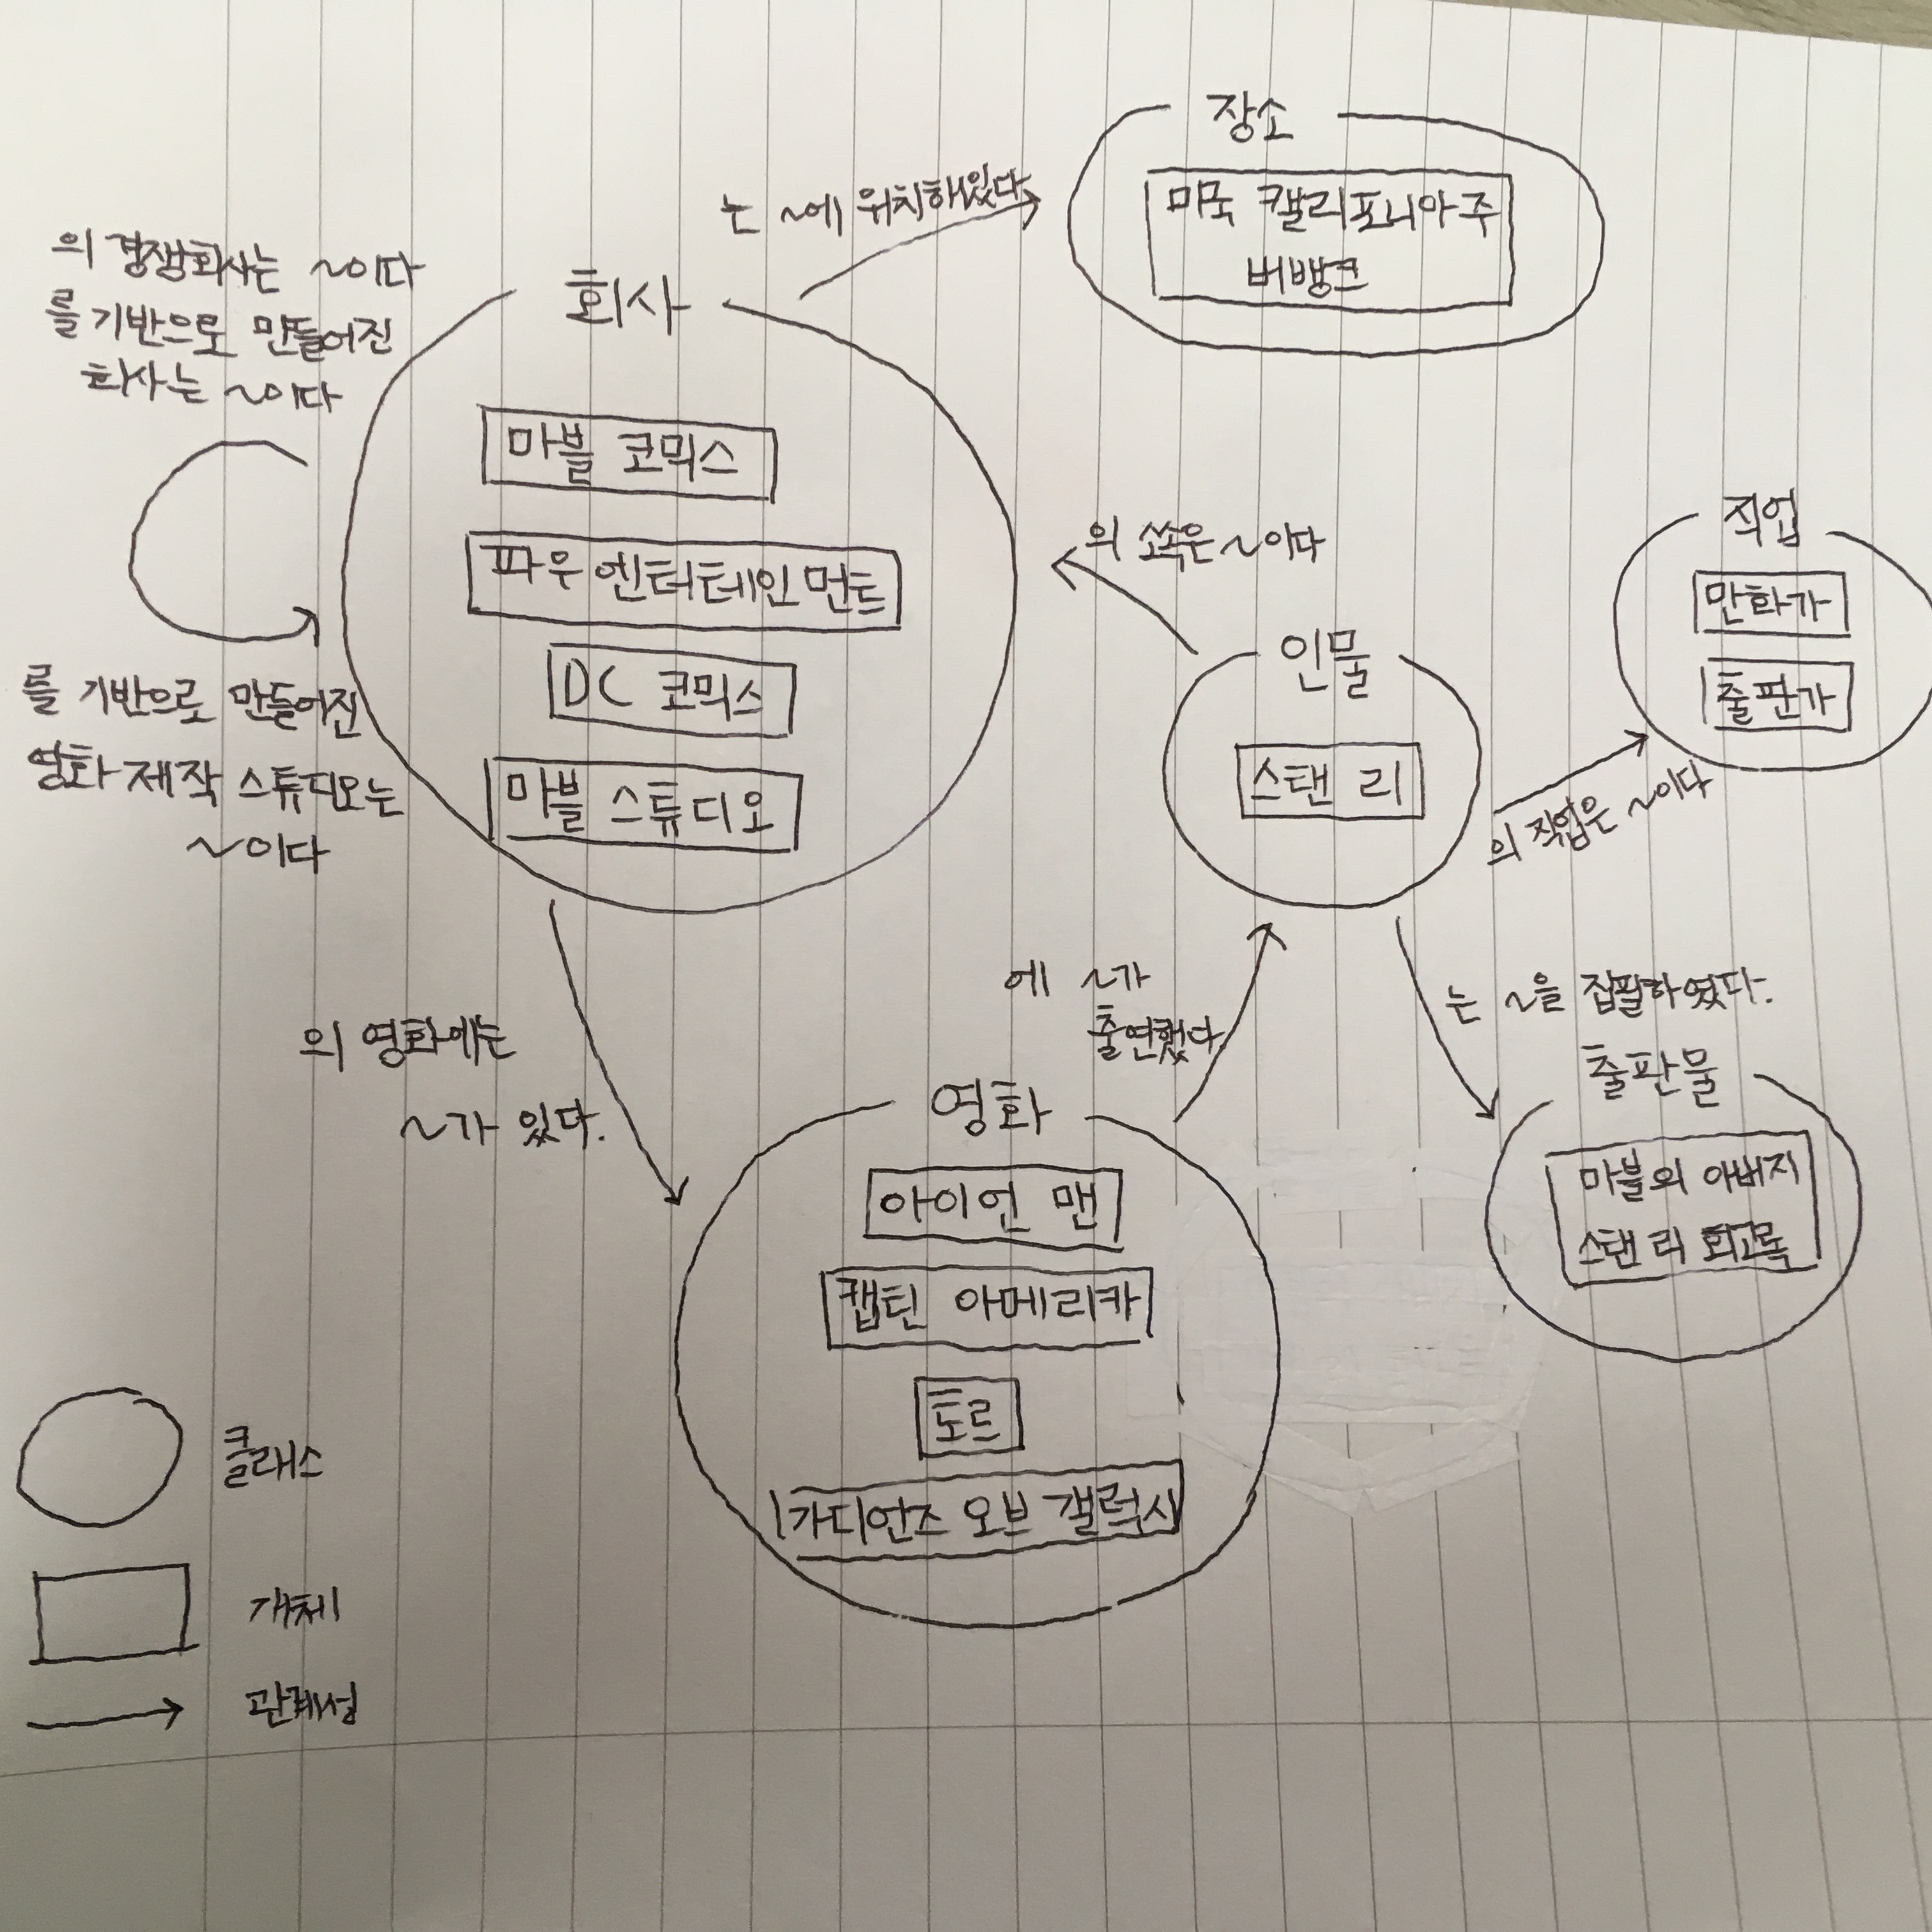 장소
미국 캘리포니아주
버뱅크
는 ~에 위치해있다
의 경쟁회사는 ~이다
를 기반으로 만들어진
회사는 ~이다
회사
마블 코믹스
파우 엔터테인먼트
DC 코믹스
마블 스튜디오
를 기반으로 만들어진
영화 제작 스튜디오는
~이다
의 소속은 ~이다
직업
만화가
출판가
인물
스탠 리
의 직업은 ~이다
에 ~가
출연했다
는 ~을 집필하였다.
의 영화에는
~가 있다.
출판물
마블의 아버지
스탠 리 회고록
영화
아이언 맨
캡틴 아메리카
토르
가디언즈 오브 갤럭시
클래스
개체
관계성